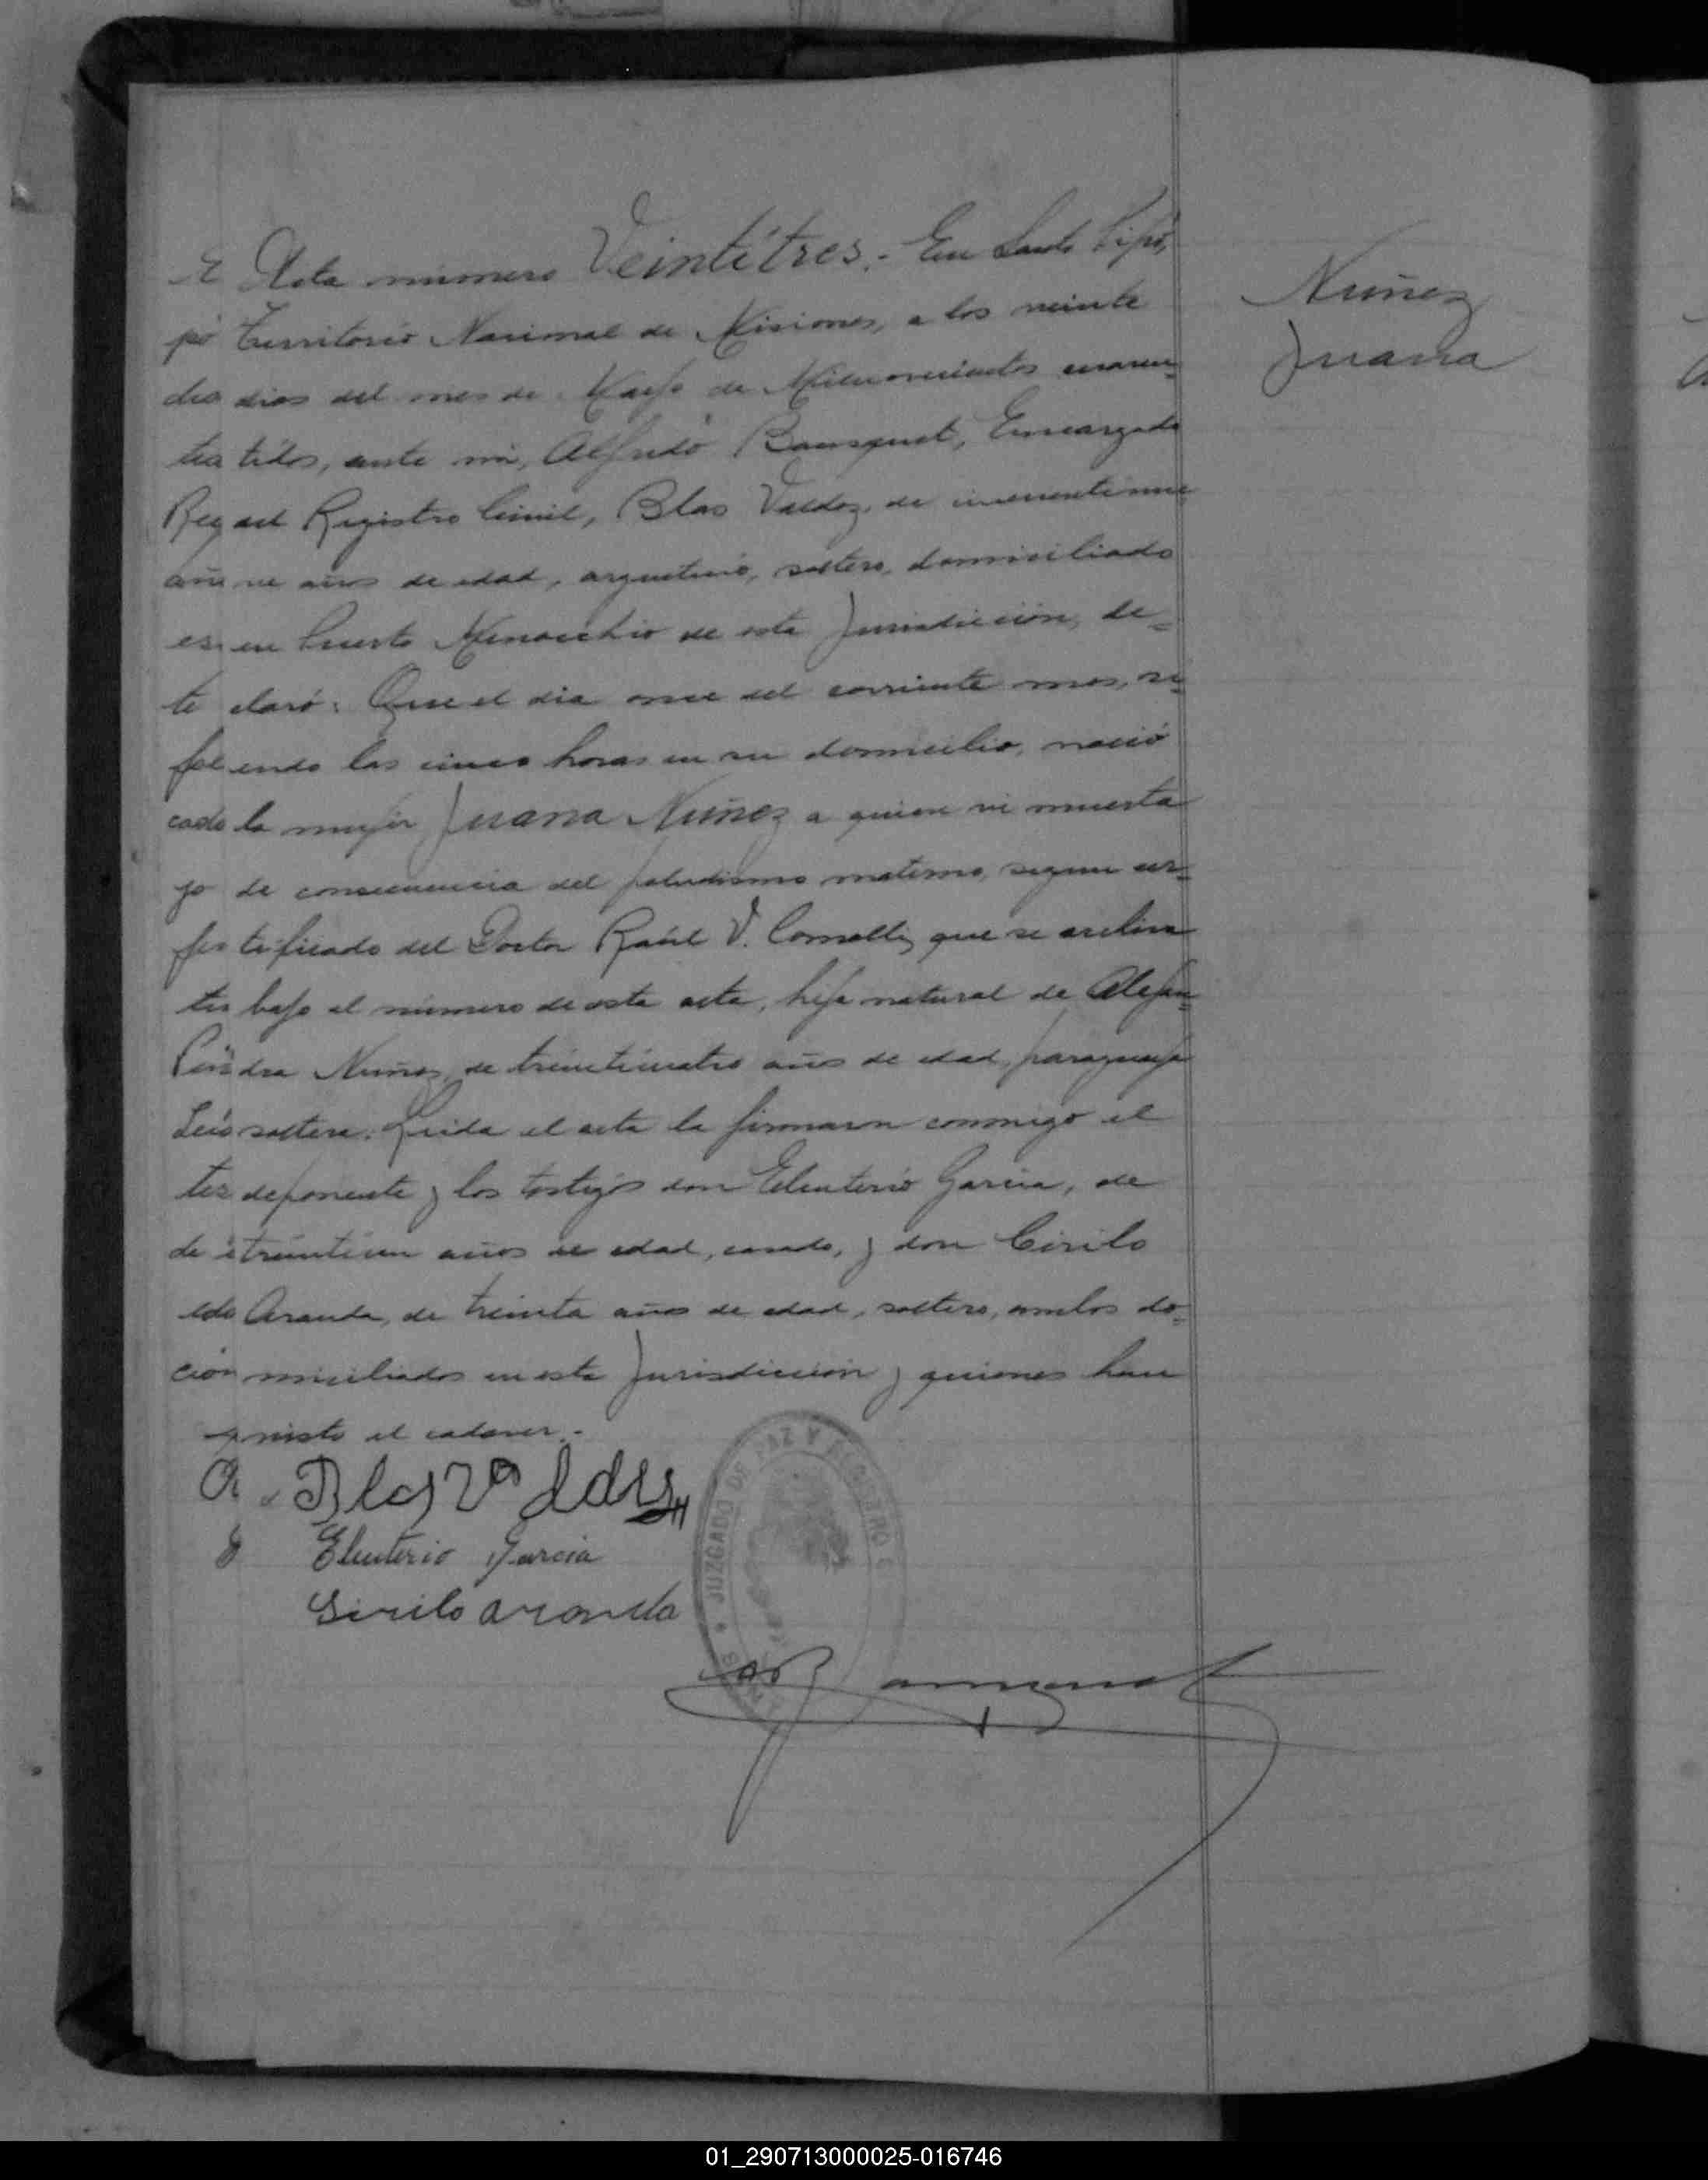 Acta número Veintitres.- En Santo Pipó,
Territorio Nacional de Misiones, a los veinte
dias del mes de Mayo de Milnovecientos cuaren-
tidos, ante mi, Alfredo Bousquet, Encargado
del Registro Civil, Blas Valdez, de cincuentinue-
ve años de edad, argentino, soltero, domiciliado
en Puerto Menocchio de esta Jurisdicción, de-
claró: Que el dia once del corriente mes, si-
endo las cinco horas en su domicilio, nació
la mujer Juana Nuñez a quien vi muerta
de consecuencia del paludismo materno, segun cer-
tificado del Doctor Raúl V. Comolli, que se archiva
bajo el número de esta acta, hija natural de Alejan-
dra Nuñez, de treinticuatro años de edad, paraguaya
soltera. Leida el acta la firmaron conmigo el
deponente y los testigos don Eleuterio Garcia, de
treintiun años de edad, casado, y don Cirilo
Aranda, de treinta años de edad, soltero, ambos do-
miciliados en esta Jurisdicción y quienes han
visto el cadaver.-
Blas Valdes
Eleuterio Garcia
Sirilo aranda
Nuñez
Juana
JUZGADO DE PAZ Y REGISTRO C
01_290713000025-016746